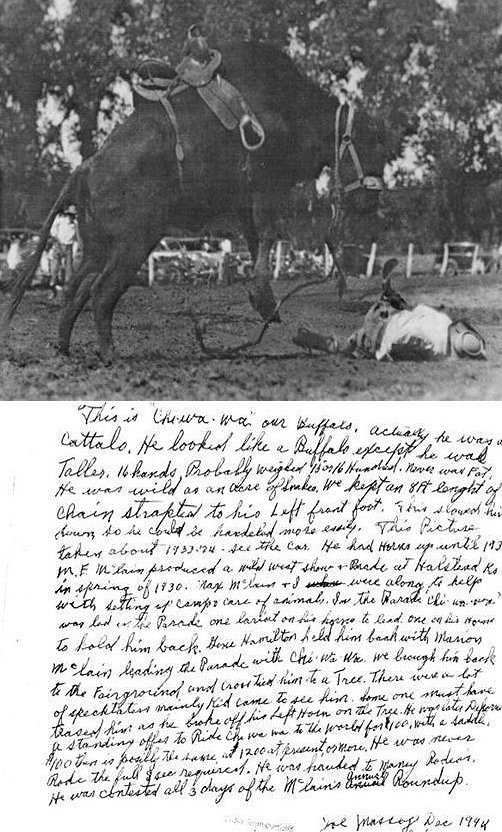 This is "Chi-wa-wa" our Buffalo, actualy he was a
Cattalo. He looked like a Buffalo except he was
Taller, 16 hands, Probably weighed 15 or 16 Hundred. Never was Fat.
He was wild as an acre of snakes. We kept an 8 ft lenght of
chain strapted to his Left front foot. This slowed him
down, so he could be handeled more easily. This Picture
taken about 1933-34 - see the car. He had Horns up until 193
M.F. McLain produced a wild west show & Parade at Halstead Ks
in spring of 1930. Max McLain & I were along to help
with setting up camp & care of animals. In the Parade Chi-wa-wa
was led in the Parade one lariat on his horns to lead. one on his Horns
to hold him back. Gene Hamilton held him back with Marion
McLain leading the Parade with Chi-Wa Wa. We brough him back
to the Fairground and cross tied him to a Tree. There was a lot
of specktators mainly kid came to see him. Some one must have
teased him, as he broke off his Left Horn on the Tree. He was later Dehorned
a standing offer to Ride Chi wa wa to the world for $100, with a saddle.
$100 then is posibly the same, at $1200 at present or more. He was never
Rode the full 8 sec required. He was hauled to maney Rodeos.
He was contested all 3 days of the McLain's annual Roundup.
Joe Massoy Dec 1994